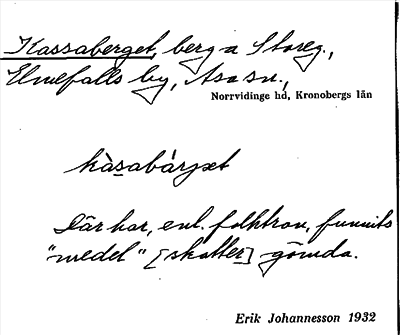 Kassaberget, berg a Storeg.,
Elmefalls by, Asa sn.,
Norrvidinge hd, Kronobergs län
kàsabàrjət
Där har, enl. folktron, funnits
"medel" [skatter] gömda.
Erik Johannesson 1932